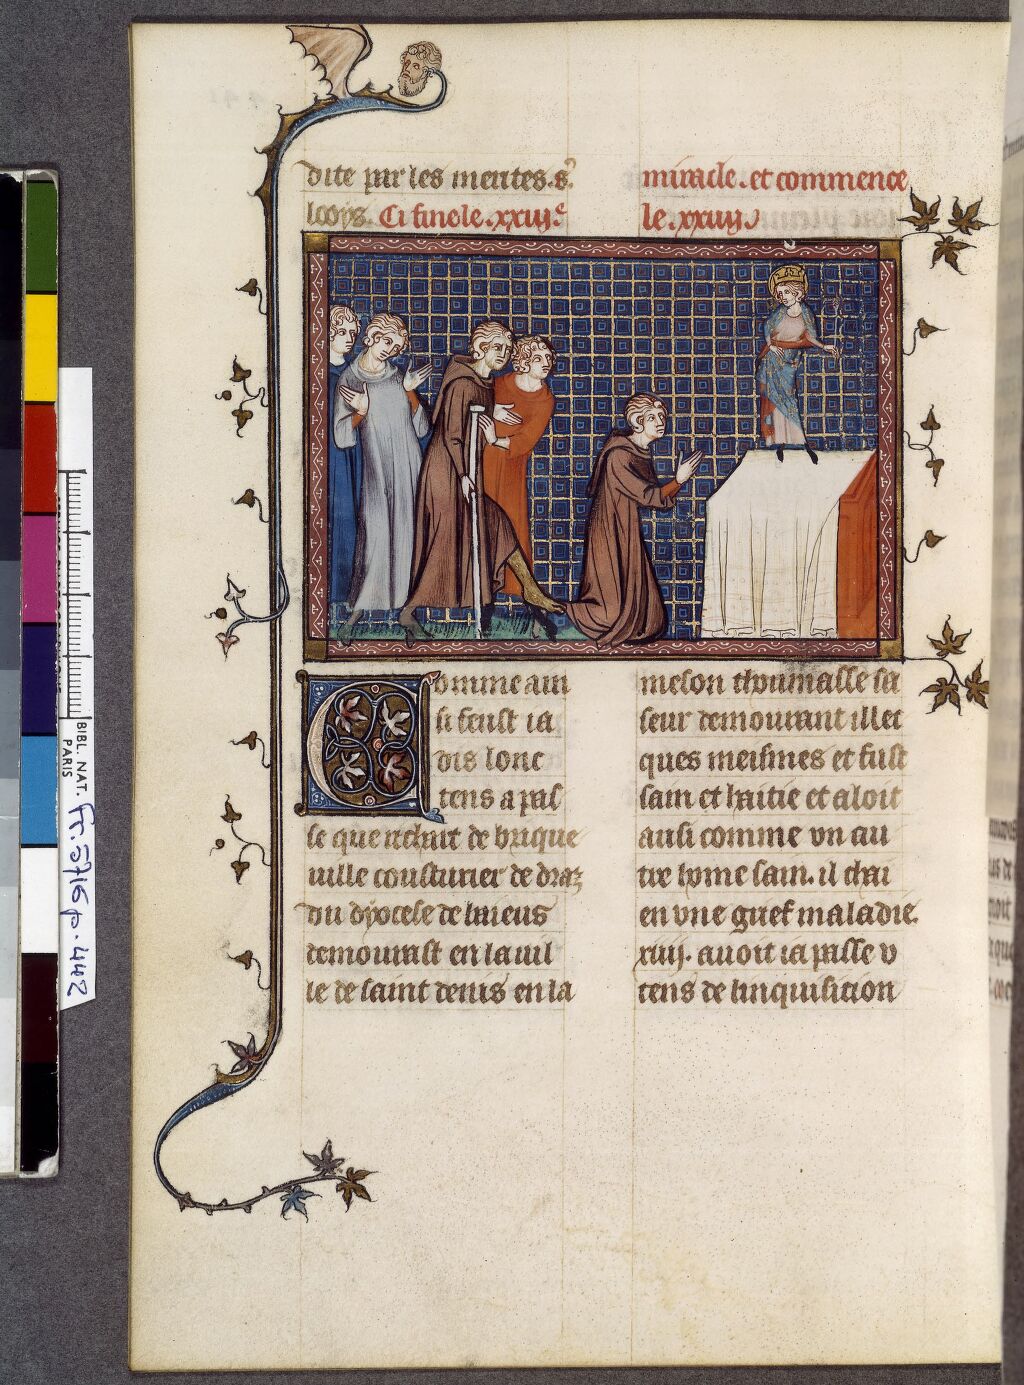 dite par les merites. s.
looys. Ci finele .xxiij.e
miracle. et commence
le .xxiiij.
Comme ain
si feust ia
dis lonc
tens a pas
se que richart de brique
uille cousturier de draz
du dyocese de baieus
demourast en la uil
le de saint denis en la
meson thoumasse sa
seur demourant illec
ques meismes et fust
sain et haitie et aloit
ausi comme vn au
tre home sain. il chai
en vne grief maladie.
xiiij. auoit ia passe v
tens de linquisicion
BIBL. NAT.
PARIS
Fr. 5716 p. 442